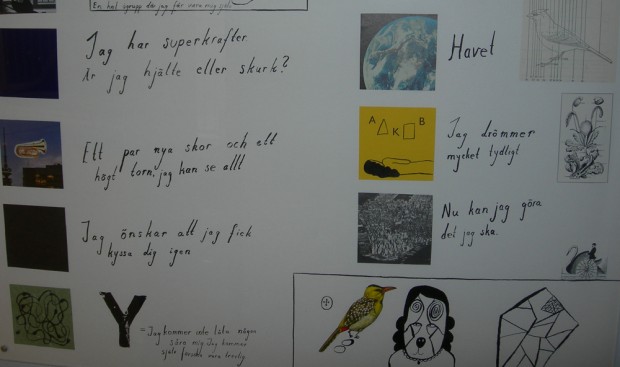 En hel grupp där jag får vara mig själv
Jag har superkrafter.
Är jag hjälte eller skurk?
Ett par nya skor och ett
högt torn, jag kan se allt
Jag önskar att jag fick
kyssa dig igen
Y
= Jag kommer inte låta någon
såra mig. Jag kommer
själv försöka vara trevlig
Havet
A B
K
Jag drömmer
mycket tydligt
Nu kan jag göra
det jag ska.